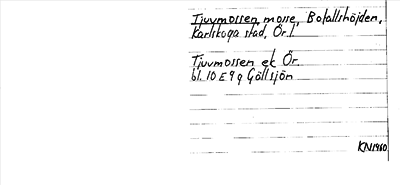 Tjuvmossen, mosse, Bofallshöjden,
Karlskoga stad, Ör. l.
Tjuvmossen ek Ör.
bl. 10 E 9 g Gällsjön
KN 1960